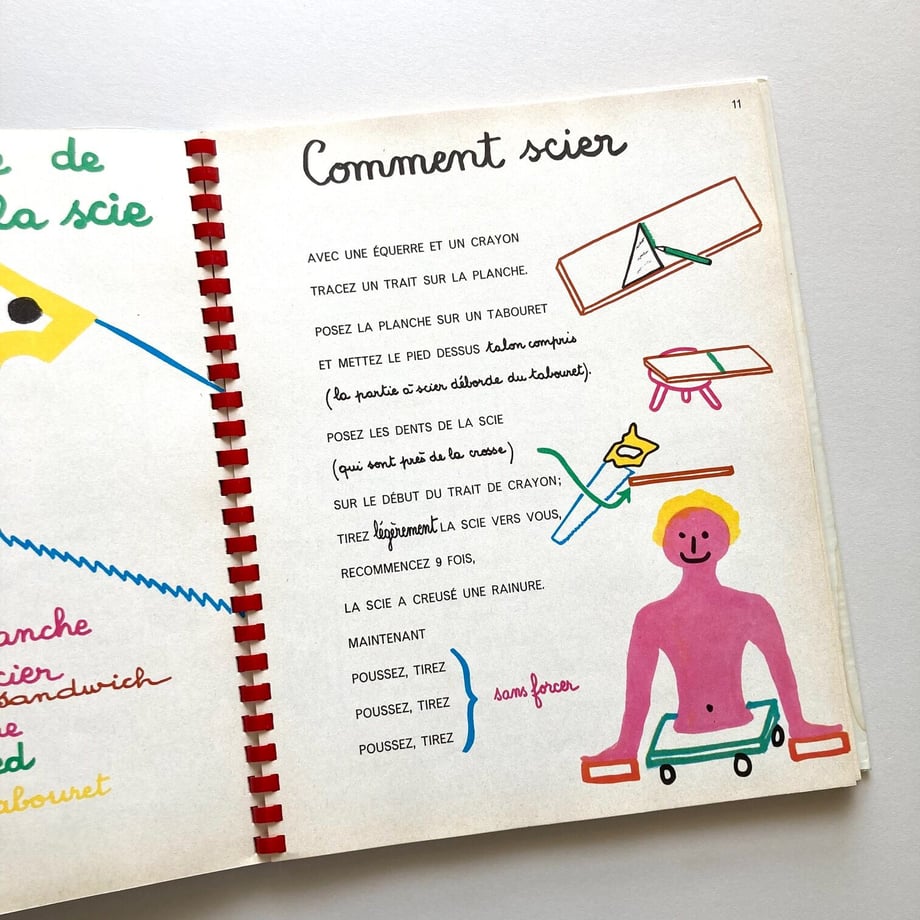 de
la scie
sandwich
11
Comment scier
AVEC UNE ÉQUERRE ET UN CRAYON
TRACEZ UN TRAIT SUR LA PLANCHE.
POSEZ LA PLANCHE SUR UN TABOURET
ET METTEZ LE PIED DESSUS talon compris
(la partie à scier déborde du tabouret).
POSEZ LES DENTS DE LA SCIE
(qui sont près de la crosse)
SUR LE DÉBUT DU TRAIT DE CRAYON;
TIREZ légèrement LA SCIE VERS VOUS,
RECOMMENCEZ 9 FOIS,
LA SCIE A CREUSÉ UNE RAINURE.
MAINTENANT
POUSSEZ, TIREZ
POUSSEZ, TIREZ sans forcer
POUSSEZ, TIREZ